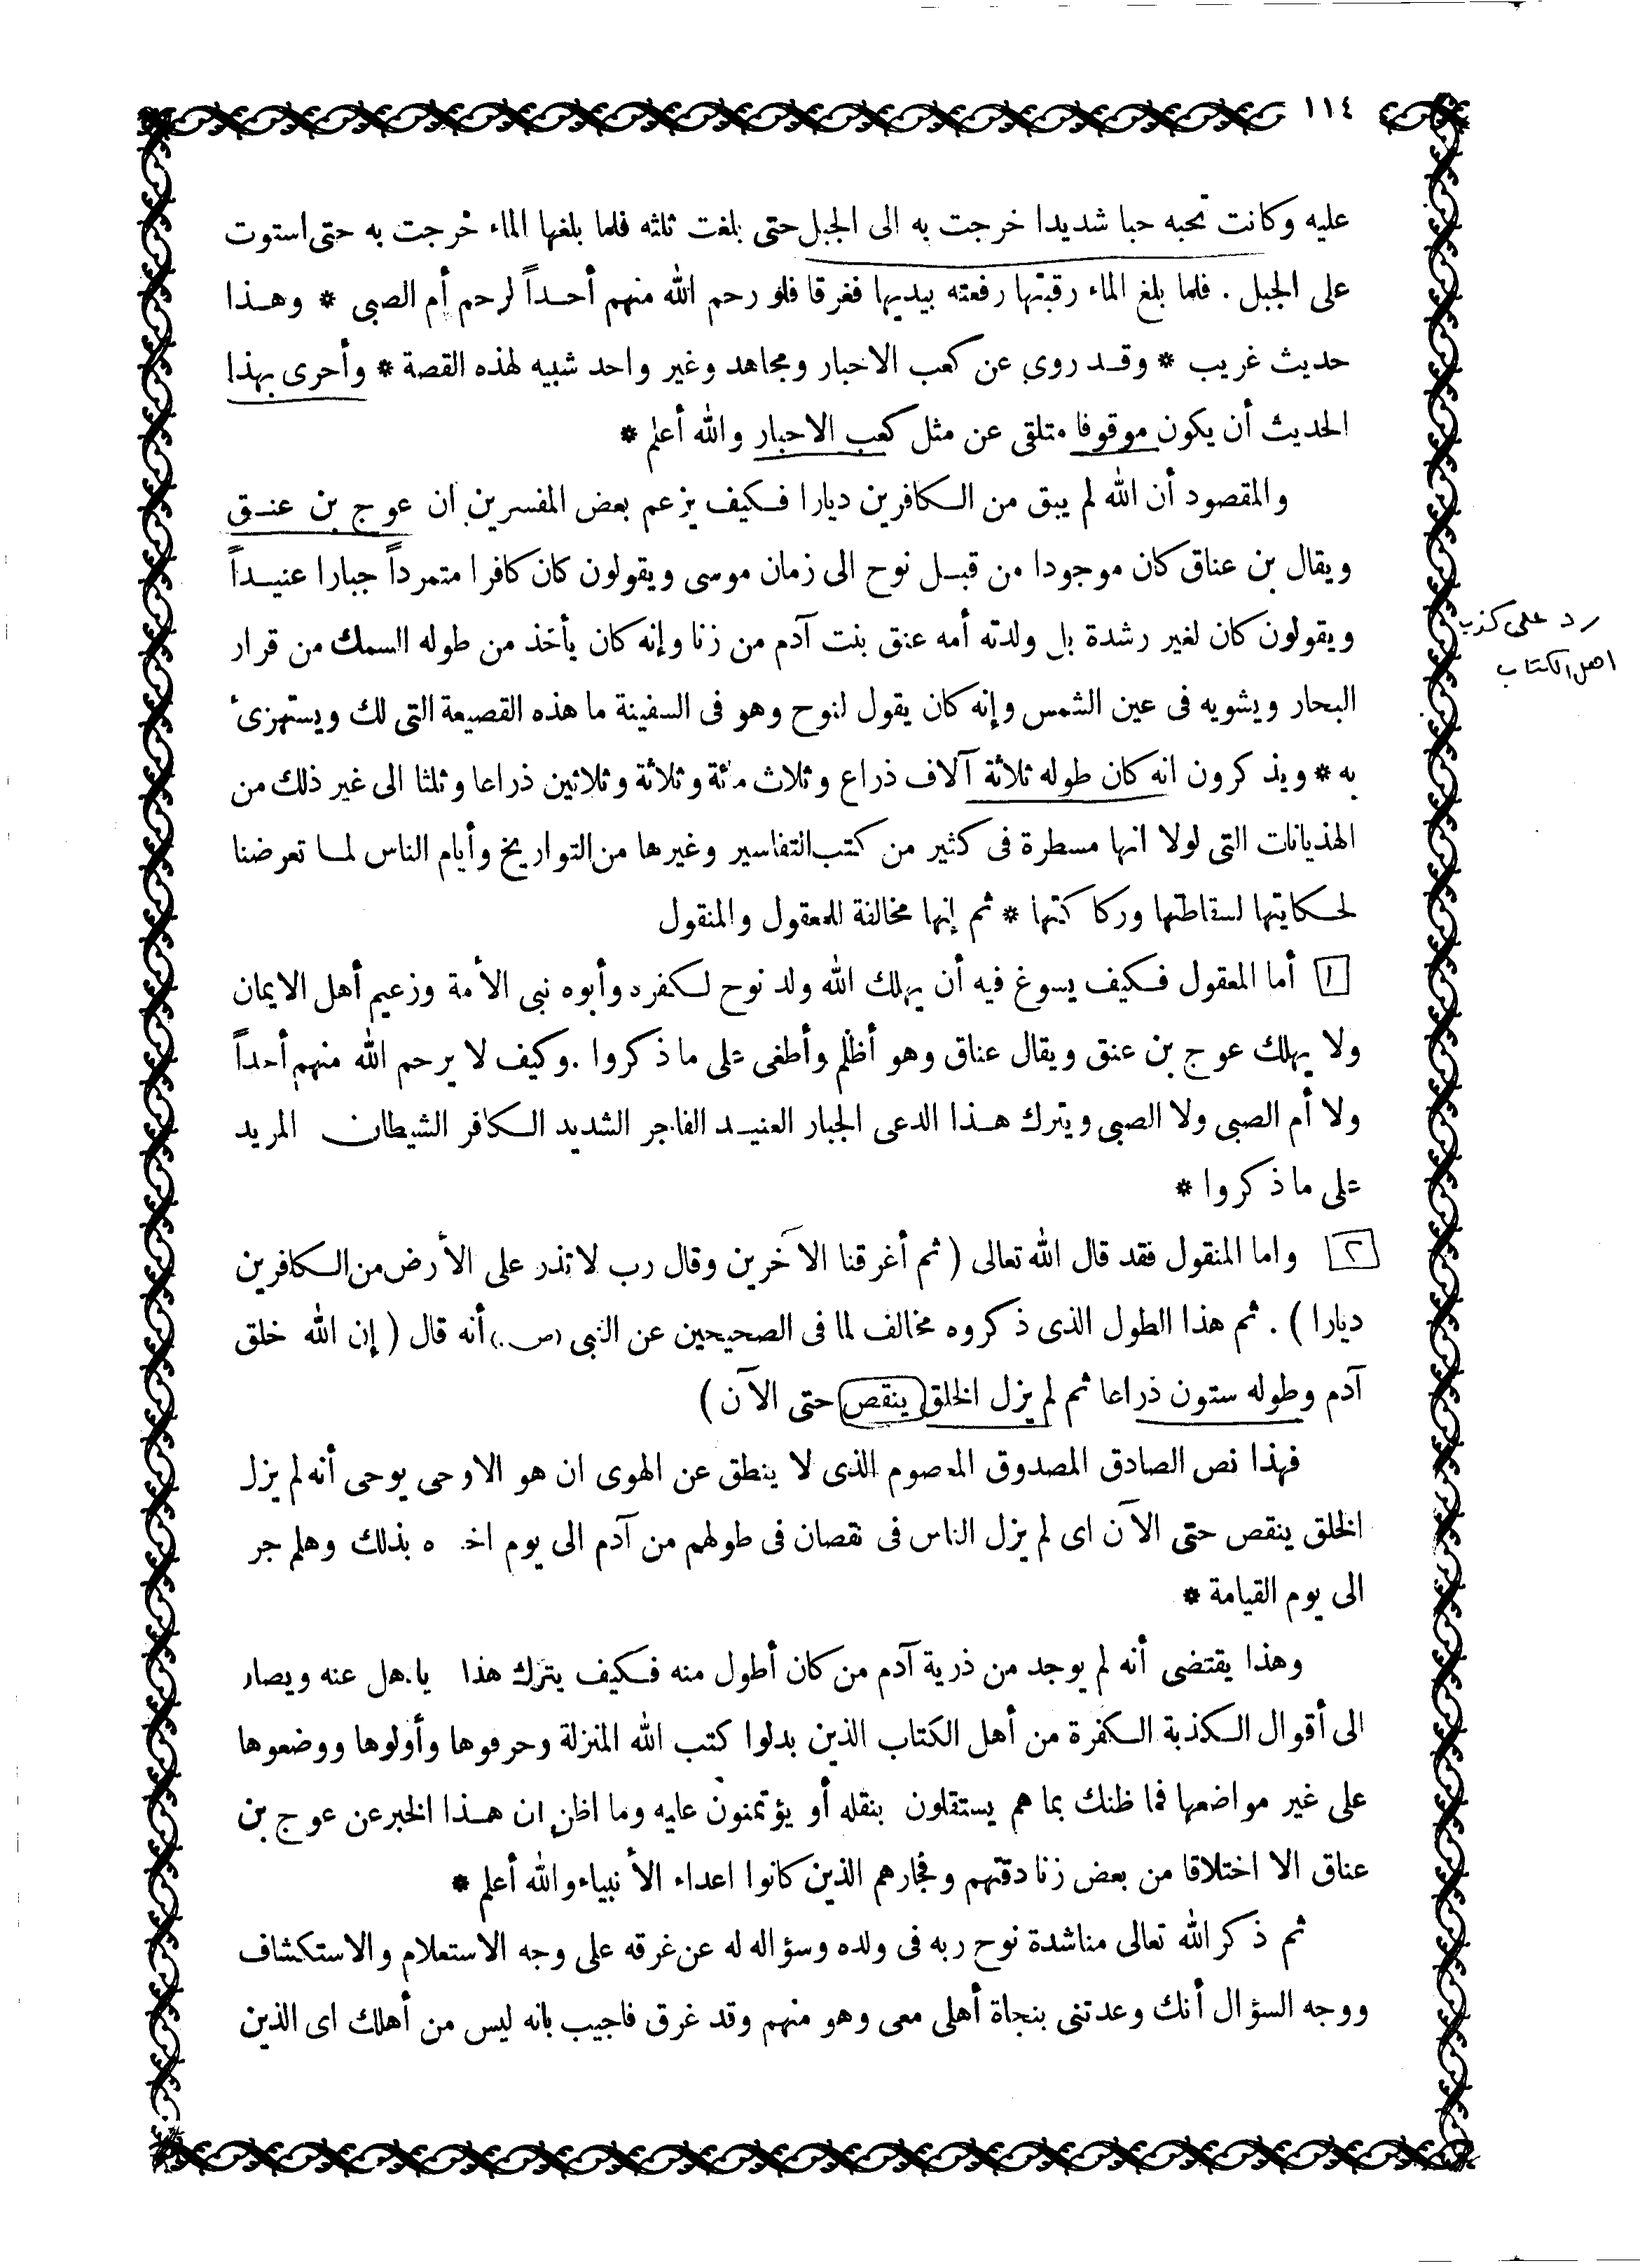 ١١٤
عليه وكانت تحبه حبا شديدا خرجت به الى الجبل حتى بلغت ثلثه فلما بلغها الماء خرجت به حتى استوت
على الجبل . فلما بلغ الماء رقبتها رفعته بيديها فغرقا فلو رحم الله منهم أحداً لرحم أم الصبى * وهذا
حديث غريب * وقد روي عن كعب الاحبار ومجاهد وغير واحد شبيه لهذه القصة * وأحرى بهذا
الحديث أن يكون موقوفا متلقى عن مثل كعب الاحبار والله أعلم *
والمقصود أن الله لم يبق من الكافرين ديارا فكيف يزعم بعض المفسرين ان عوج بن عنق
ويقال بن عناق كان موجودا من قبل نوح الى زمان موسى ويقولون كان كافرا متمرداً جبارا عنيداً
ويقولون كان لغير رشدة بل ولدته أمه عنق بنت آدم من زنا وإنه كان يأخذ من طوله السمك من قرار
رد على كذب
اهل الكتاب
البحار ويشويه فى عين الشمس وإنه كان يقول لنوح وهو فى السفينة ما هذه القصيعة التى لك ويستهزئ
به * ويذكرون انه كان طوله ثلاثة آلاف ذراع وثلاث مائة وثلاثة وثلاثين ذراعا وثلثا الى غير ذلك من
الهذيانات التى لولا انها مسطرة فى كثير من كتب التفاسير وغيرها من التواريخ وأيام الناس لما تعرضنا
لحكايتها لسقاطتها وركاكتها * ثم إنها مخالفة للمعقول والمنقول
١ أما المعقول فكيف يسوغ فيه أن يهلك الله ولد نوح لكفره وأبوه نبى الأمة وزعيم أهل الايمان
ولا يهلك عوج بن عنق ويقال عناق وهو أظلم وأطغى على ما ذكروا . وكيف لا يرحم الله منهم أحداً
ولا أم الصبى ولا الصبى ويترك هذا الدعى الجبار العنيد الفاجر الشديد الكافر الشيطان المريد
على ما ذكروا *
٢ واما المنقول فقد قال الله تعالى ( ثم أغرقنا الآخرين وقال رب لا تذر على الأرض من الكافرين
ديارا ) . ثم هذا الطول الذى ذكروه مخالف لما فى الصحيحين عن النبى (ص.) أنه قال ( إن الله خلق
آدم وطوله ستون ذراعا ثم لم يزل الخلق ينقص حتى الآن )
فهذا نص الصادق المصدوق المعصوم الذى لا ينطق عن الهوى ان هو الا وحى يوحى أنه لم يزل
الخلق ينقص حتى الآن اى لم يزل الناس فى نقصان فى طولهم من آدم الى يوم بذلك وهلم جر
الى يوم القيامة *
وهذا يقتضى أنه لم يوجد من ذرية آدم من كان أطول منه فكيف يترك هذا عنه ويصار
الى أقوال الكذبة الكفرة من أهل الكتاب الذين بدلوا كتب الله المنزلة وحرفوها وأولوها ووضعوها
على غير مواضعها فما ظنك بما هم يستقلون بنقله أو يؤتمنون عليه وما اظن ان هذا الخبر عن عوج بن
عناق الا اختلاقا من بعض زنادقتهم وفجارهم الذين كانوا اعداء الأنبياء والله أعلم *
ثم ذكر الله تعالى مناشدة نوح ربه فى ولده وسؤاله له عن غرقه على وجه الاستعلام والاستكشاف
ووجه السؤال أنك وعدتنى بنجاة أهلى معى وهو منهم وقد غرق فاجيب بانه ليس من أهلك اى الذين